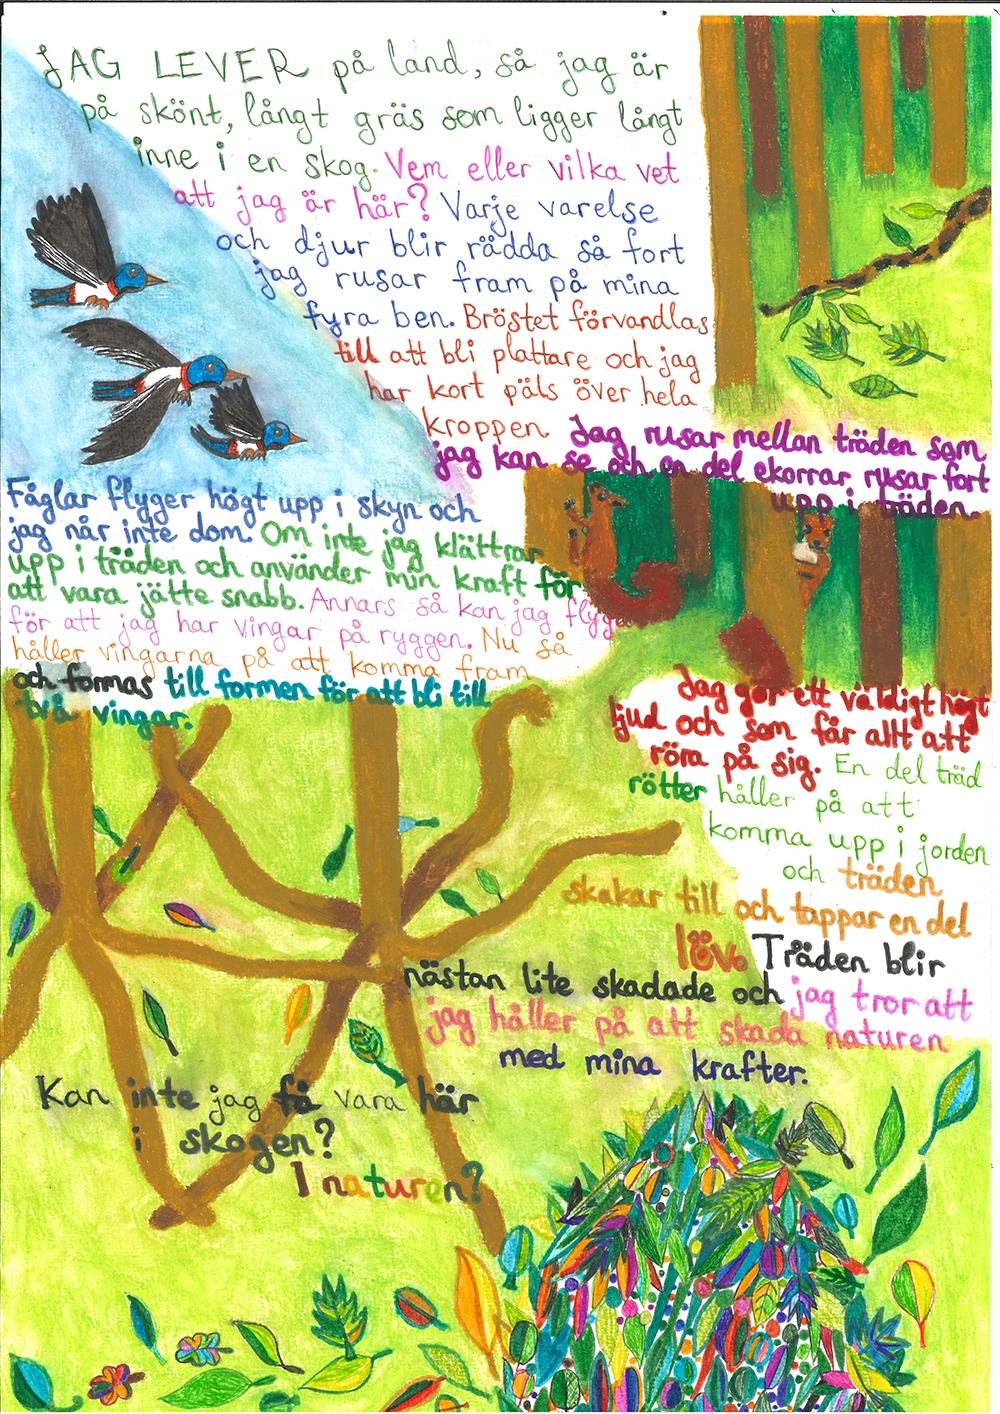 JAG LEVER på land, så jag är
på skönt, långt gräs som ligger långt
inne i en skog. Vem eller vilka vet
att jag är här? Varje varelse
och djur blir rädda så fort
jag rusar fram på mina
fyra ben. Bröstet förvandlas
till att bli plattare och jag
har kort päls över hela
kroppen. Jag rusar mellan träden som
jag kan se och en del ekorrar rusar fort
upp i träden.
Fåglar flyger högt upp i skyn och
jag når inte dom. Om inte jag klättrar
upp i träden och använder min kraft för
att vara jätte snabb. Annars så kan jag flyga
för att jag har vingar på ryggen. Nu så
håller vingarna på att komma fram
och formas till formen för att bli till
två vingar.
Jag gör ett väldigt högt
ljud och som får allt att
röra på sig. En del träd
rötter håller på att
komma upp i jorden
och träden
skakar till och tappar en del
löv. Träden blir
nästan lite skadade och jag tror att
jag håller på att skada naturen
med mina krafter.
Kan inte jag få vara här
i skogen?
I naturen?